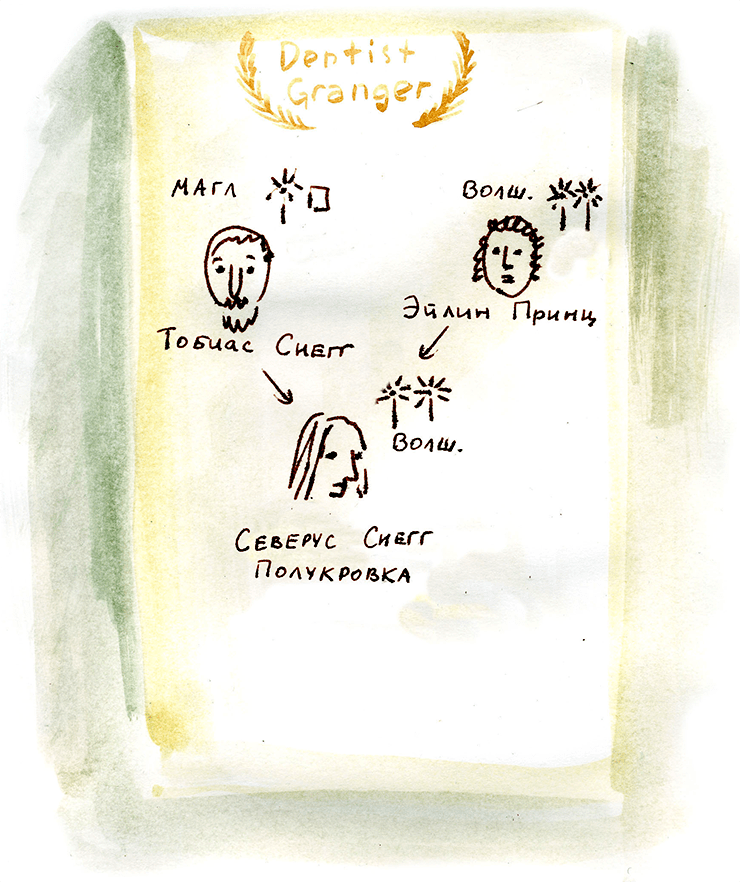 Dentist
Granger
МАГЛ
ВОЛШ.
Тобиас Снегг
Эйлин Принц
ВОЛШ.
СЕВЕРУС СНЕГГ
ПОЛУКРОВКА